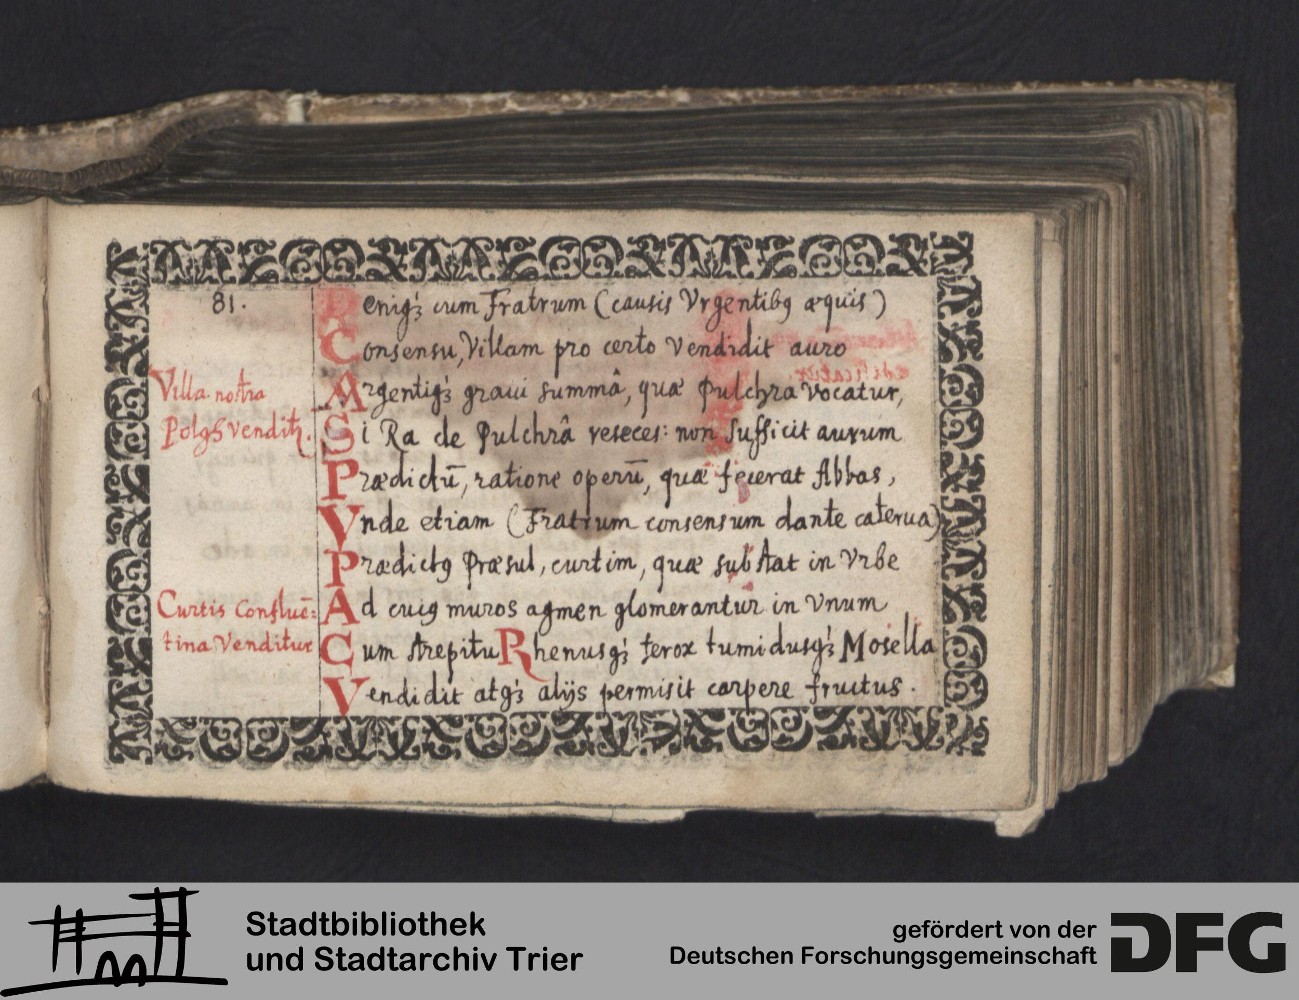 81.
Deniq3 cum Fratrum (causis Vrgentib9 æquis)
Consensu, Villam pro certo Vendidit auro
Argentiq3 graui summâ, quæ Pulchra Vocatur,
Si Ra de Pulchrâ reseces: non sufficit aurum
Prædictū, ratione operū, quæ fecerat Abbas,
Vnde etiam (Fratrum consensum dante caterua)
Prædict9 Præsul, curtim, quæ substat in Vrbe
Ad cui9 muros agmen glomerantur in Vnum
Cum strepitu Rhenusq3 ferox tumidusq3 Mosella
Vendidit atq3 alijs permisit carpere fructus.
Villa nostra
Curtis Confluē=
tina Venditur
Stadtbibliothek
und Stadtarchiv Trier
gefördert von der
Deutschen Forschungsgemeinschaft
DFG